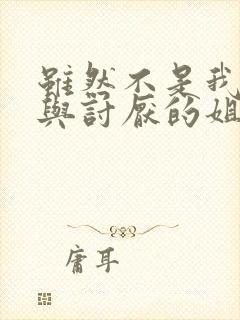 雖然不是我
與討厭的姐
庸耳